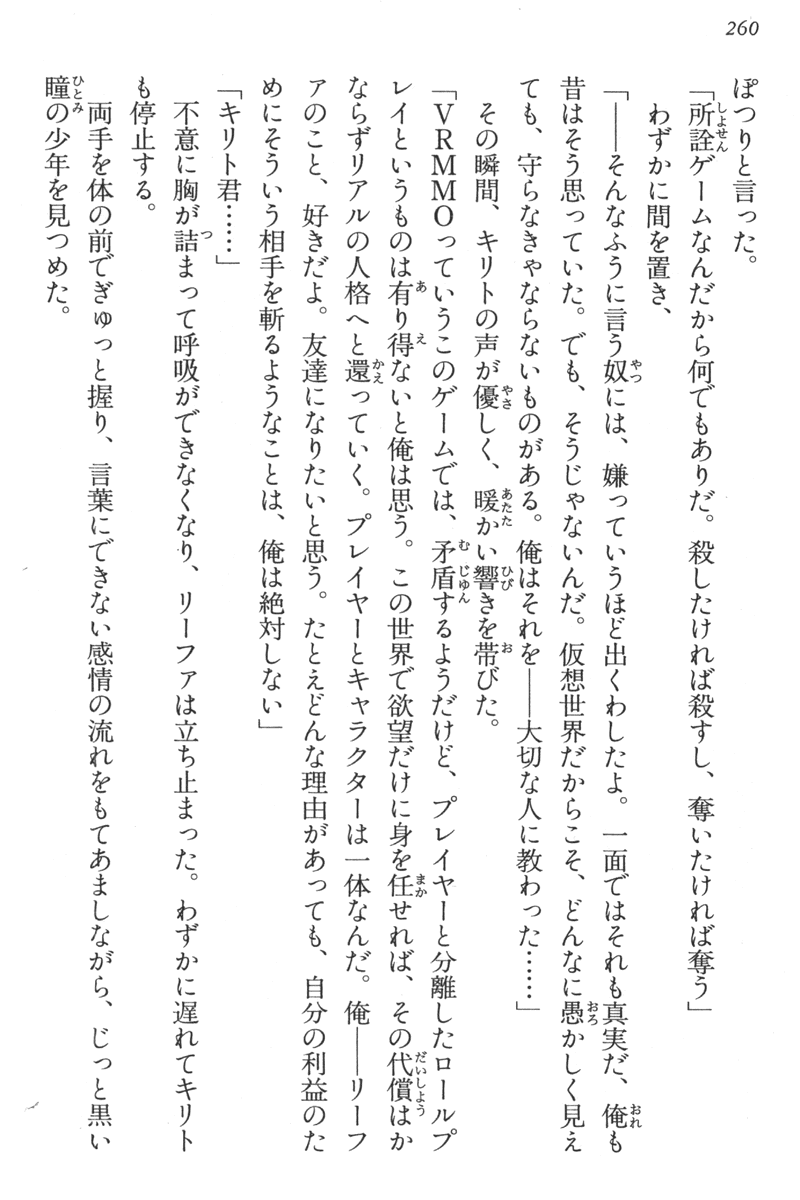 260
ぽつりと言った。
「所詮ゲームなんだから何でもありだ。殺したければ殺すし、奪いたければ奪う」
わずかに間を置き、
「――そんなふうに言う奴には、嫌っていうほど出くわしたよ。一面ではそれも真実だ、俺も
昔はそう思っていた。でも、そうじゃないんだ。仮想世界だからこそ、どんなに愚かしく見え
ても、守らなきゃならないものがある。俺はそれを――大切な人に教わった……」
その瞬間、キリトの声が優しく、暖かい響きを帯びた。
「ＶＲＭＭＯっていうこのゲームでは、矛盾するようだけど、プレイヤーと分離したロールプ
レイというものは有り得ないと俺は思う。この世界で欲望だけに身を任せれば、その代償はか
ならずリアルの人格へと還っていく。プレイヤーとキャラクターは一体なんだ。俺――リーフ
ァのこと、好きだよ。友達になりたいと思う。たとえどんな理由があっても、自分の利益のた
めにそういう相手を斬るようなことは、俺は絶対しない」
「キリト君……」
不意に胸が詰まって呼吸ができなくなり、リーファは立ち止まった。わずかに遅れてキリト
も停止する。
両手を体の前でぎゅっと握り、言葉にできない感情の流れをもてあましながら、じっと黒い
瞳の少年を見つめた。